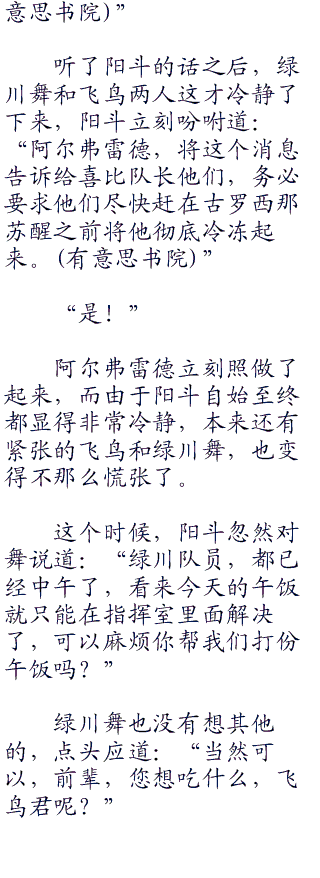 意思书院)”
听了阳斗的话之后，绿
川舞和飞鸟两人这才冷静了
下来，阳斗立刻吩咐道：
“阿尔弗雷德，将这个消息
告诉给喜比队长他们，务必
要求他们尽快赶在古罗西那
苏醒之前将他彻底冷冻起
来。(有意思书院)”
“是！”
阿尔弗雷德立刻照做了
起来，而由于阳斗自始至终
都显得非常冷静，本来还有
紧张的飞鸟和绿川舞，也变
得不那么慌张了。
这个时候，阳斗忽然对
舞说道：“绿川队员，都已
经中午了，看来今天的午饭
就只能在指挥室里面解决
了，可以麻烦你帮我们打份
午饭吗？”
绿川舞也没有想其他
的，点头应道：“当然可
以，前辈，您想吃什么，飞
鸟君呢？”